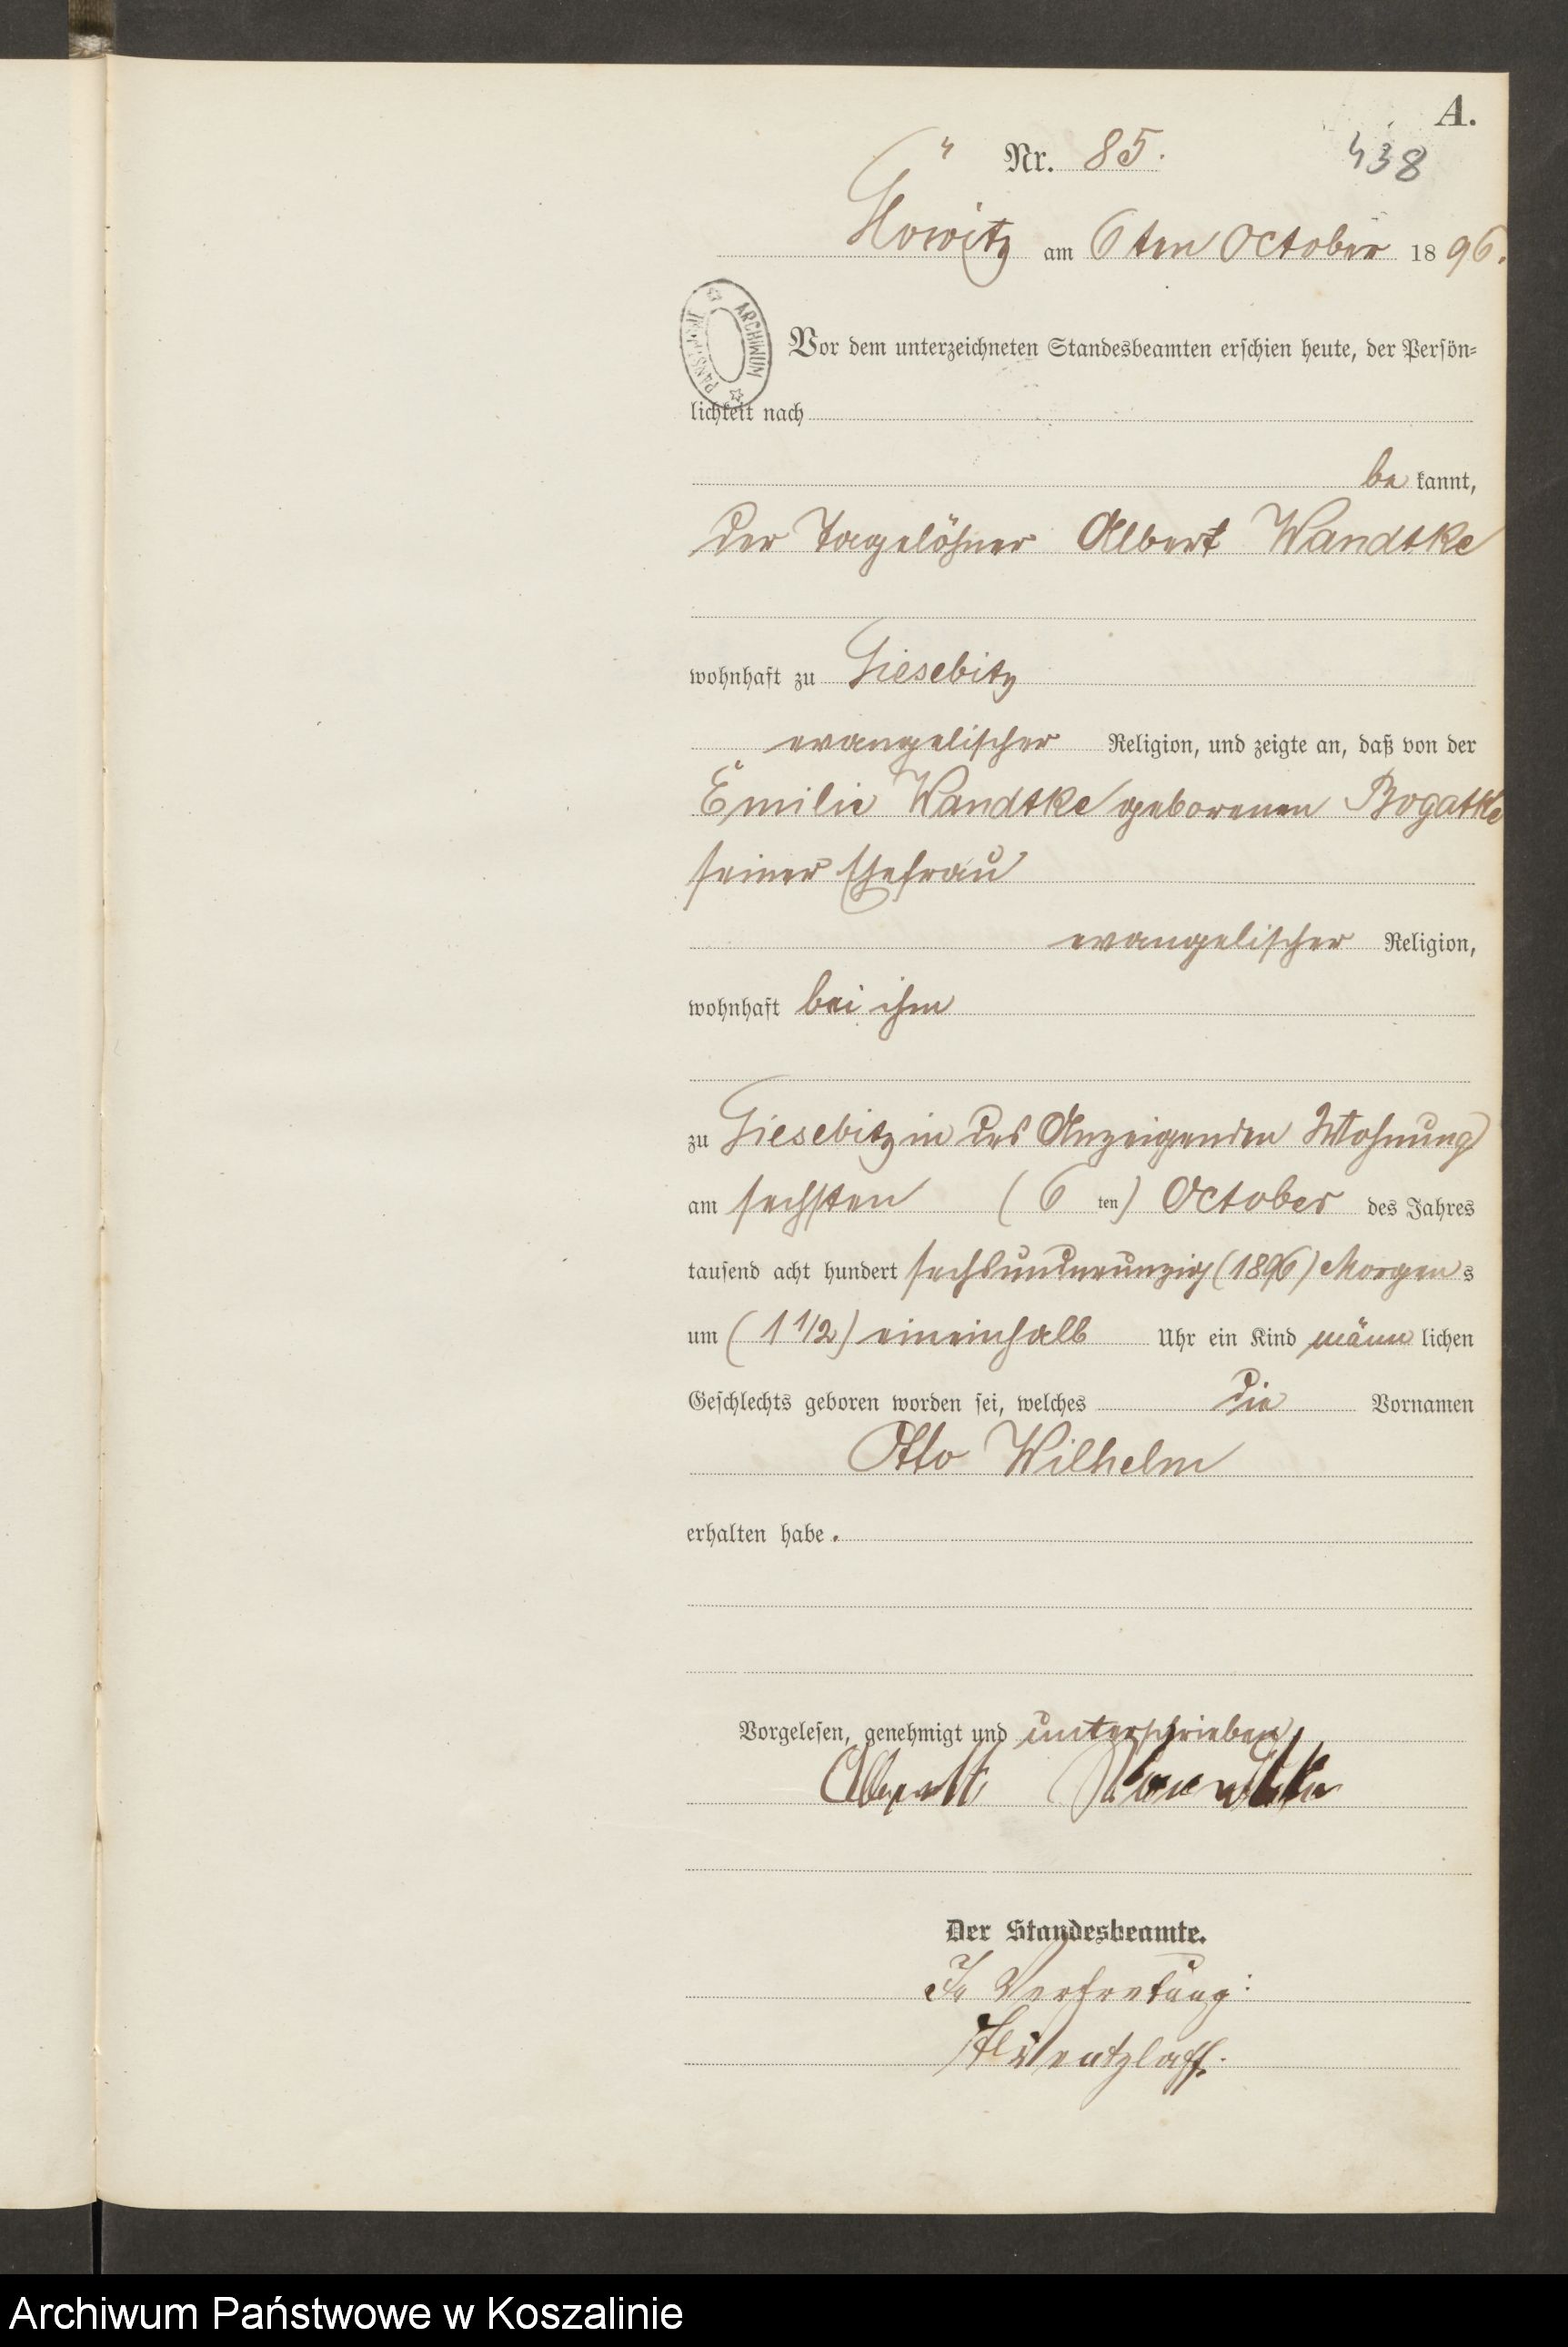 A.
Nr. 85.
438
Glowitz am 6ten October 1896.
ARCHIWUM PAŃSTWOWE
Vor dem unterzeichneten Standesbeamten erschien heute, der Persön=
lichkeit nach
be kannt,
der Tagelöhner Albert Wandtke
wohnhaft zu Giesebitz
evangelischer Religion, und zeigte an, daß von der
Emilie Wandtke geborenen Bogatke
seiner Ehefrau
evangelischer Religion,
wohnhaft bei ihm
zu Giesebitz in des Anzeigenden Wohnung
am sechsten (6 ten) October des Jahres
tausend acht hundert sechsundneunzig (1896) Morgens
um (1 1/2) eineinhalb Uhr ein Kind männlichen
Geschlechts geboren worden sei, welches die Vornamen
Otto Wilhelm
erhalten habe.
Vorgelesen, genehmigt und unterschrieben
Albert
Der Standesbeamte.
In Vertretung:
Archiwum Państwowe w Koszalinie